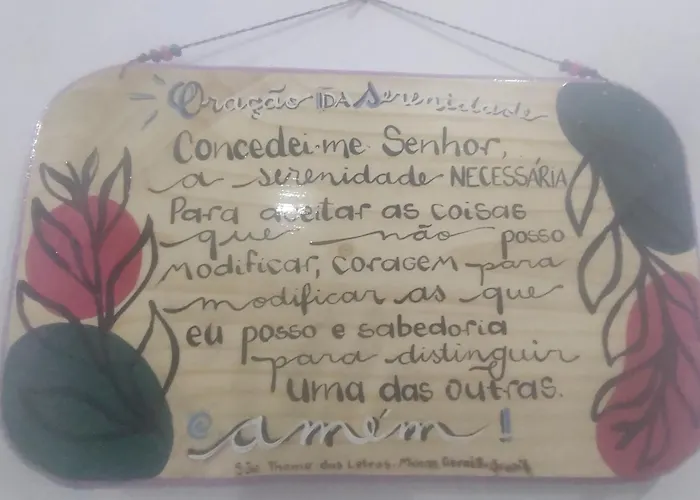 Oração DA Serenidade
Concedei-me Senhor,
a serenidade NECESSÁRIA
Para aceitar as coisas
que não posso
modificar, coragem para
modificar as que
eu posso e sabedoria
para distinguir
uma das outras.
amém!
São Thome das Letras. Minas Gerais. Brasil